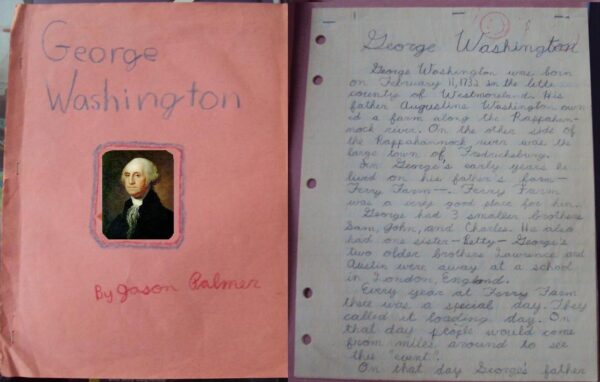 George
Washington
By Jason Palmer
George Washington
George Washington was born
on February 11, 1732 in the
county of Westmoreland. His
father Augustine Washington own-
ed a farm along the Rappahan-
nock river. On the other side of
the Rappahannock river was the
large town of Fredricksburg.
George's early years he
lived on his father's farm—
Ferry Farm—. Ferry Farm
was a very good place for him.
George had 3 smaller brothers
Sam, John, and Charles. He also
had one sister—Betty— George's
two older brothers Lawrence and
Austin were away at a school
in London, England.
Every year at Ferry Farm
there was a special day. They
called it loading day. On
that day people would come
from miles around to see
this "event".
On that day George's father